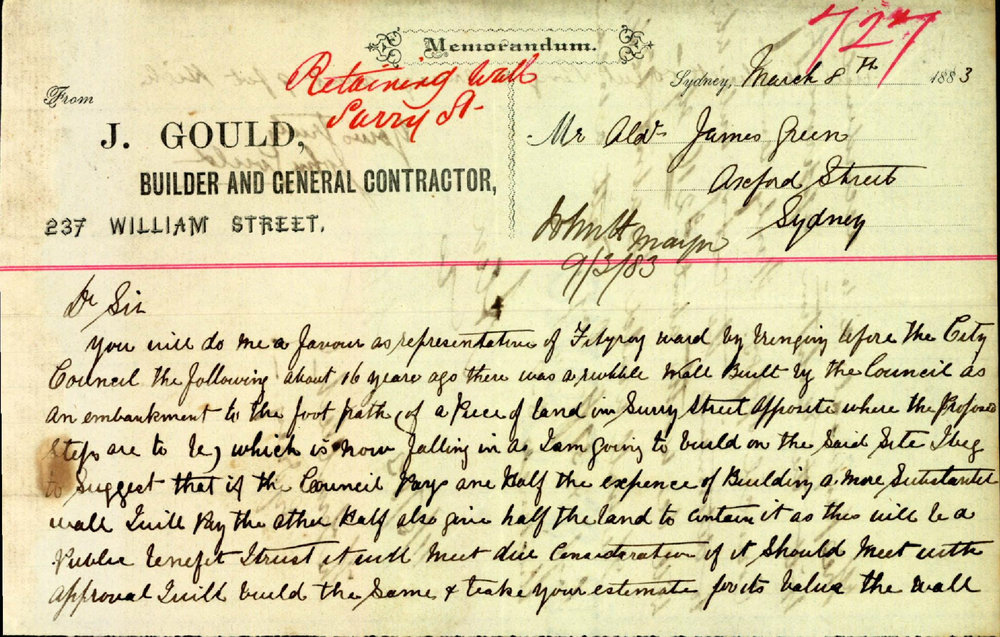 Memorandum.
727
Retaining Wall
Surry St
Sydney, March 8th 1883
From
J. GOULD,
BUILDER AND GENERAL CONTRACTOR,
237 WILLIAM STREET.
Mr Aldn James Green
Oxford Street
Sydney
Mayor
9/3/83
Dr Sir
You will do me a favour as representative of Fitzroy ward by bringing before the City
Council the following about 16 years ago there was a rubble Wall Built by the Council as
an embankment to the foot path, (of a Piece of land in Surry Street opposite where the Proposed
Steps are to be) which is now falling in as I am going to build on the Said Site I beg
to Suggest that if the Council Pays one Half the expence of Building a more Substantel
wall I will Pay the other Half also give half the land to contain it as this will be a
Public benefit I trust it will meet due Consideration if it Should Meet with
approval I will build the Same & take your estimate for its Value the Wall